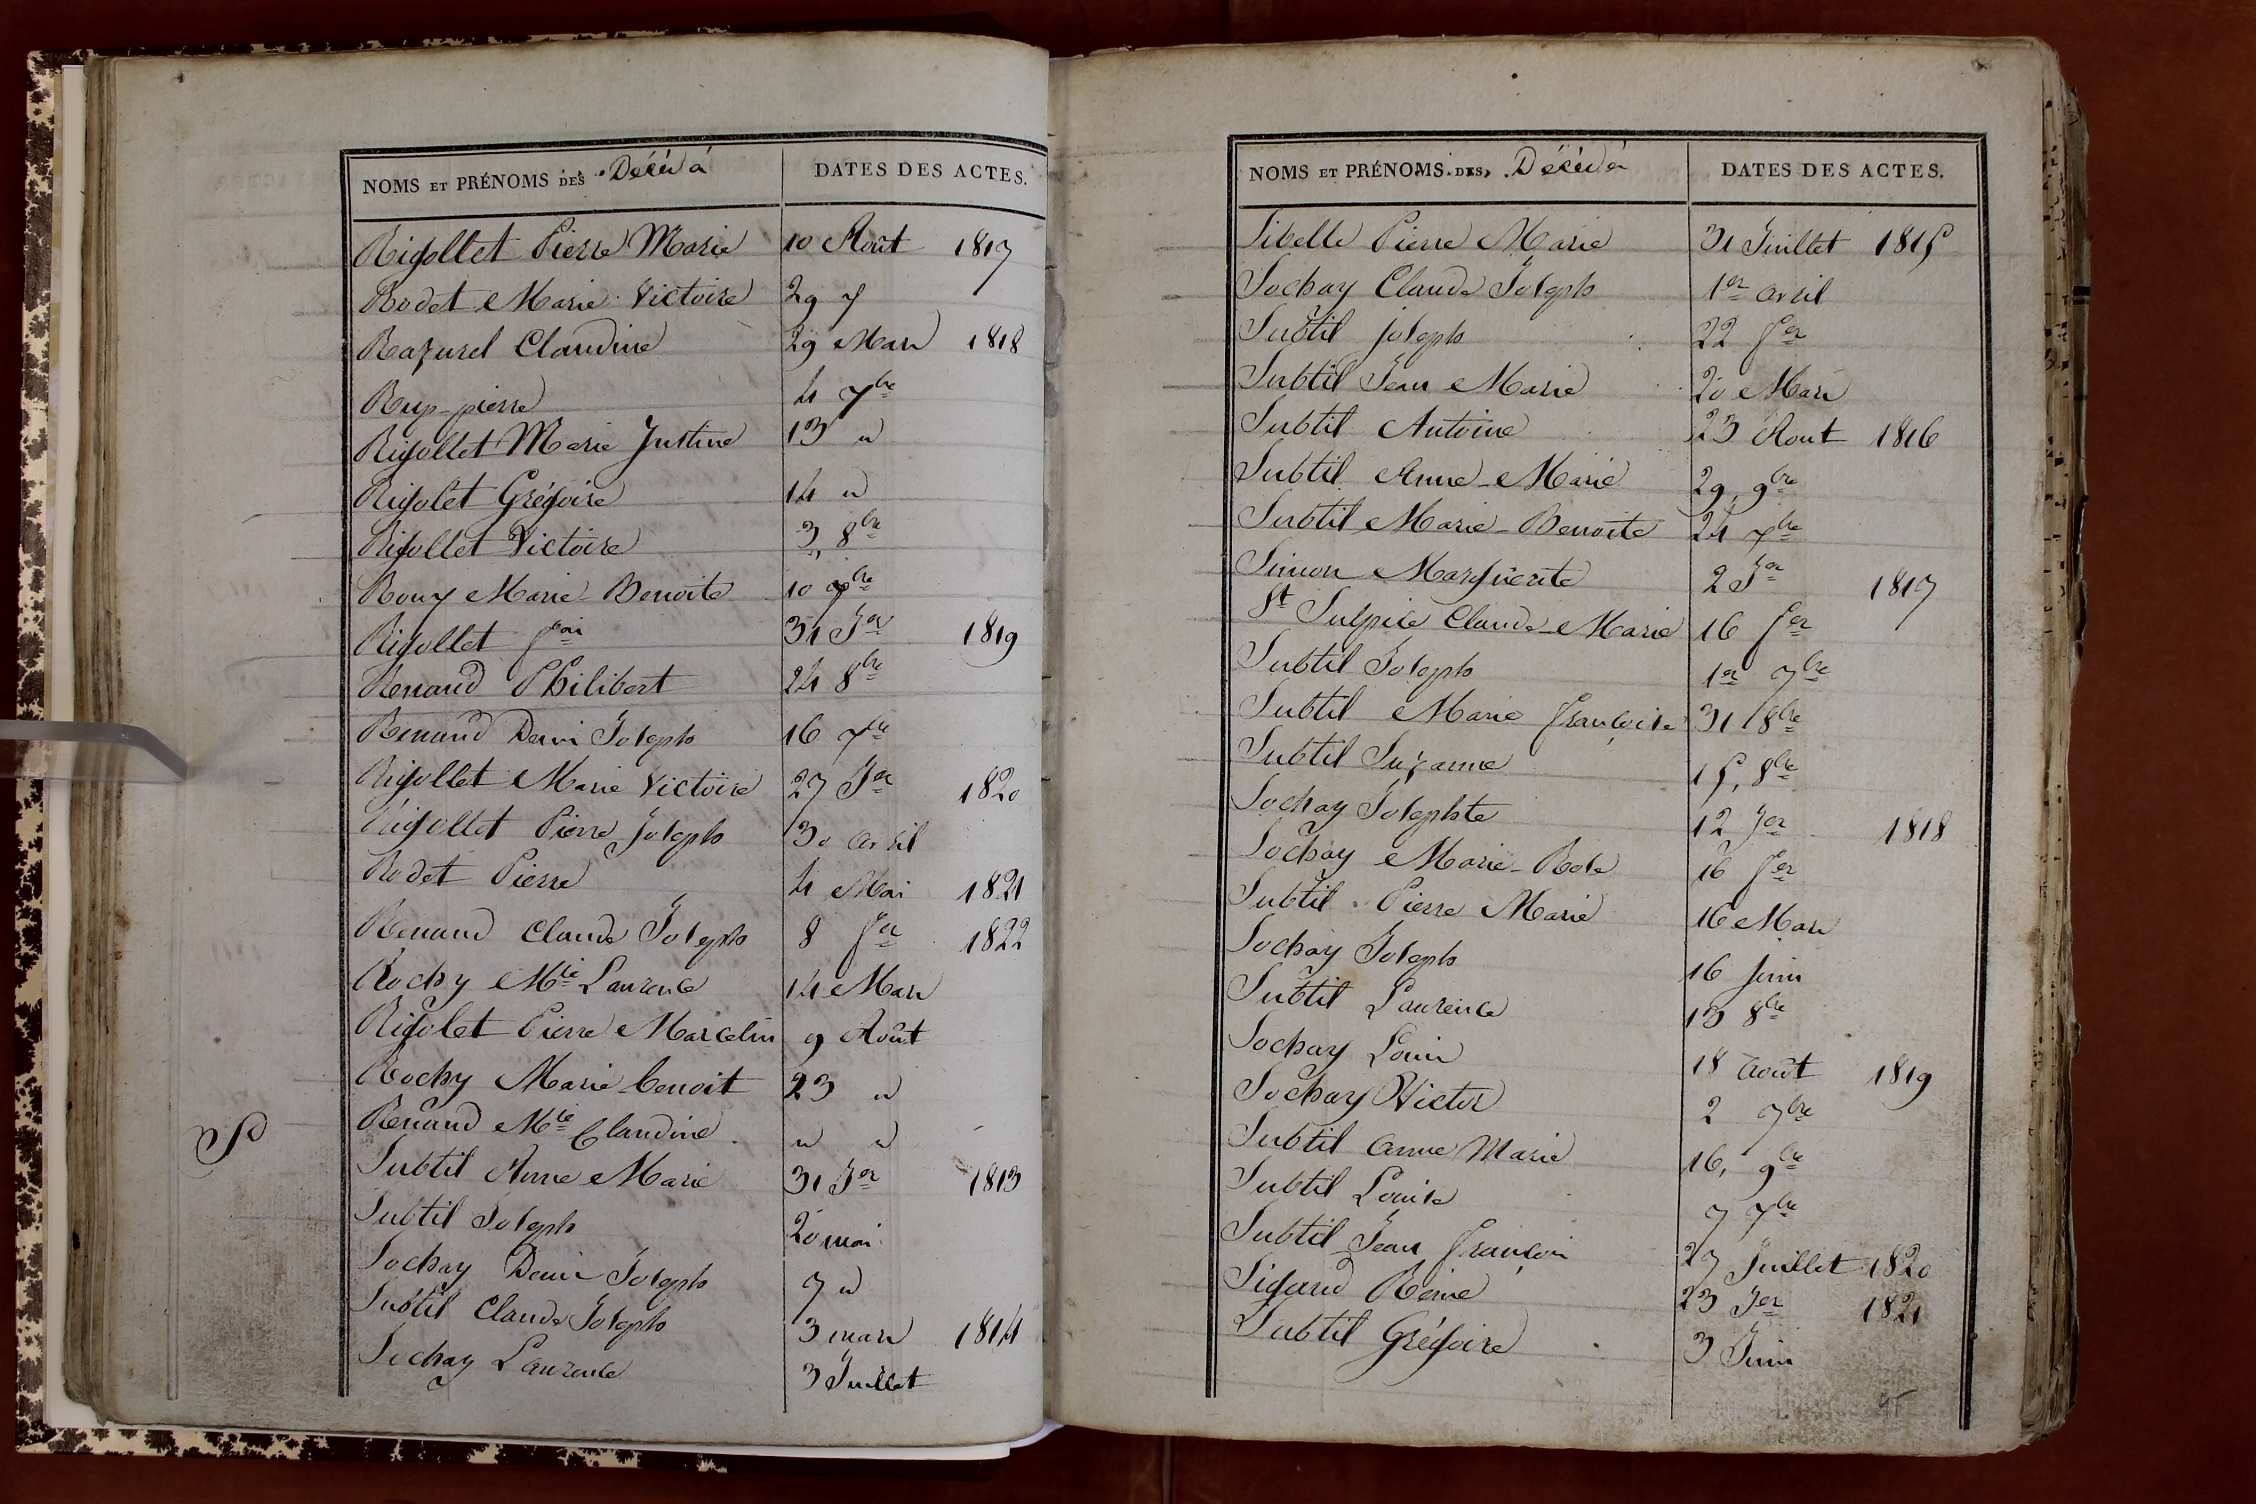 NOMS ET PRÉNOMS DES Décédés
DATES DES ACTES.
Rigollet Pierre Marie 10 Août 1817
Rodet Marie Victoire 29 7
Razurel Claudine 29 Mars 1818
Rup pierre 4 7bre
Rigollet Marie Justine 13 "
Rigolet Grégoire 14 "
Rigollet Victoire 3, 8bre
Roux Marie Benoite 10 xbre
Rigollet fçois 31 Jer 1819
Renaud Philibert 24 8bre
Renaud Denis Joseph 16 7bre
Rigollet Marie Victoire 27 Jer 1820
Rigollet Pierre Joseph 30 avril
Rodet Pierre 4 Mai 1821
Renaud Claude Joseph 8 fer 1822
Rochy Mie Laurence 14 Mars
Rigolet Pierre Marcelin 9 Août
Rochy Marie benoit 23 "
Renaud Mie Claudine " "
S
Subtil Anne Marie 31 Jer 1813
Subtil Joseph 20 mai
Sochay Denis Joseph 7 "
Subtil Claude Joseph 3 mars 1814
Sochay Laurence 3 Juillet
NOMS ET PRÉNOMS DES Décédés
DATES DES ACTES.
Sibelle Pierre Marie 31 Juillet 1815
Sochay Claude Joseph 1er avril
Subtil joseph 22 fer
Subtil Jean Marie 20 Mars
Subtil Antoine 23 Aout 1816
Subtil Anne-Marie 29, 9bre
Subtil Marie-Benoite 24 7bre
Simon Marguerite 2 Jer 1817
St Sulpice Claude-Marie 16 fer
Subtil Joseph 1er 7bre
Subtil Marie Françoise 31 8bre
Subtil Suzanne 15, 8bre
Sochay Josephte 12 Jer 1818
Sochay Marie-Rose 16 fer
Subtil Pierre Marie 16 Mars
Sochay Joseph 16 Juin
Subtil Laurence 13 8bre
Sochay Louis 18 août 1819
Sochay Victor 2 7bre
Subtil anne Marie 16, 9bre
Subtil Louise 7 7bre
Subtil Jean François 27 Juillet 1820
Sigaud Reine 23 Jer 1821
Subtil Grégoire 3 Juin